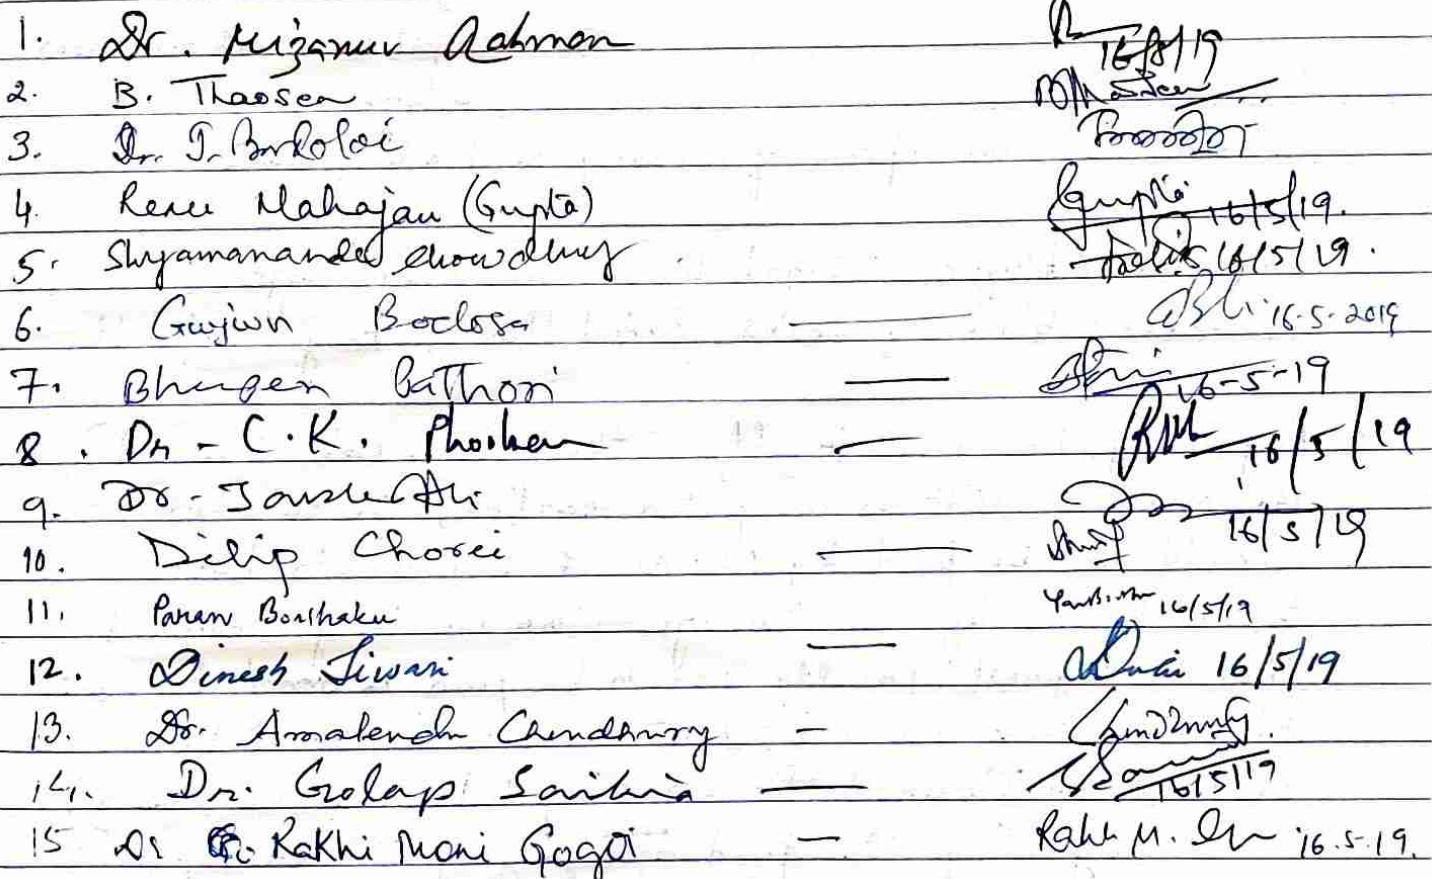 1. Dr. Mizanur Rahman 16/8/19
2. B. Thaosen
3. Dr. J. Borkoloi
4. Renu Mahajan (Gupta) Gupta 16/5/19.
5. Shyamananda Chowdhury 16/5/19.
6. Gwjwn Bodosa — 16-5-2019
7. Bhugen — 16-5-19
8. Dr - C.K. Phookan — 16/5/19
9. Dr - Ali 16/5/19
10. Dilip Chorei —
11. Paran Borthakur 16/5/19
12. Dinesh Tiwari — 16/5/19
13. Dr. Amalendu Chendhury — Chendhury.
14. Dr. Golap Saikia — 16/5/19
15 Dr Rakhi Moni Gogoi — Rakhi M. 16.5.19.